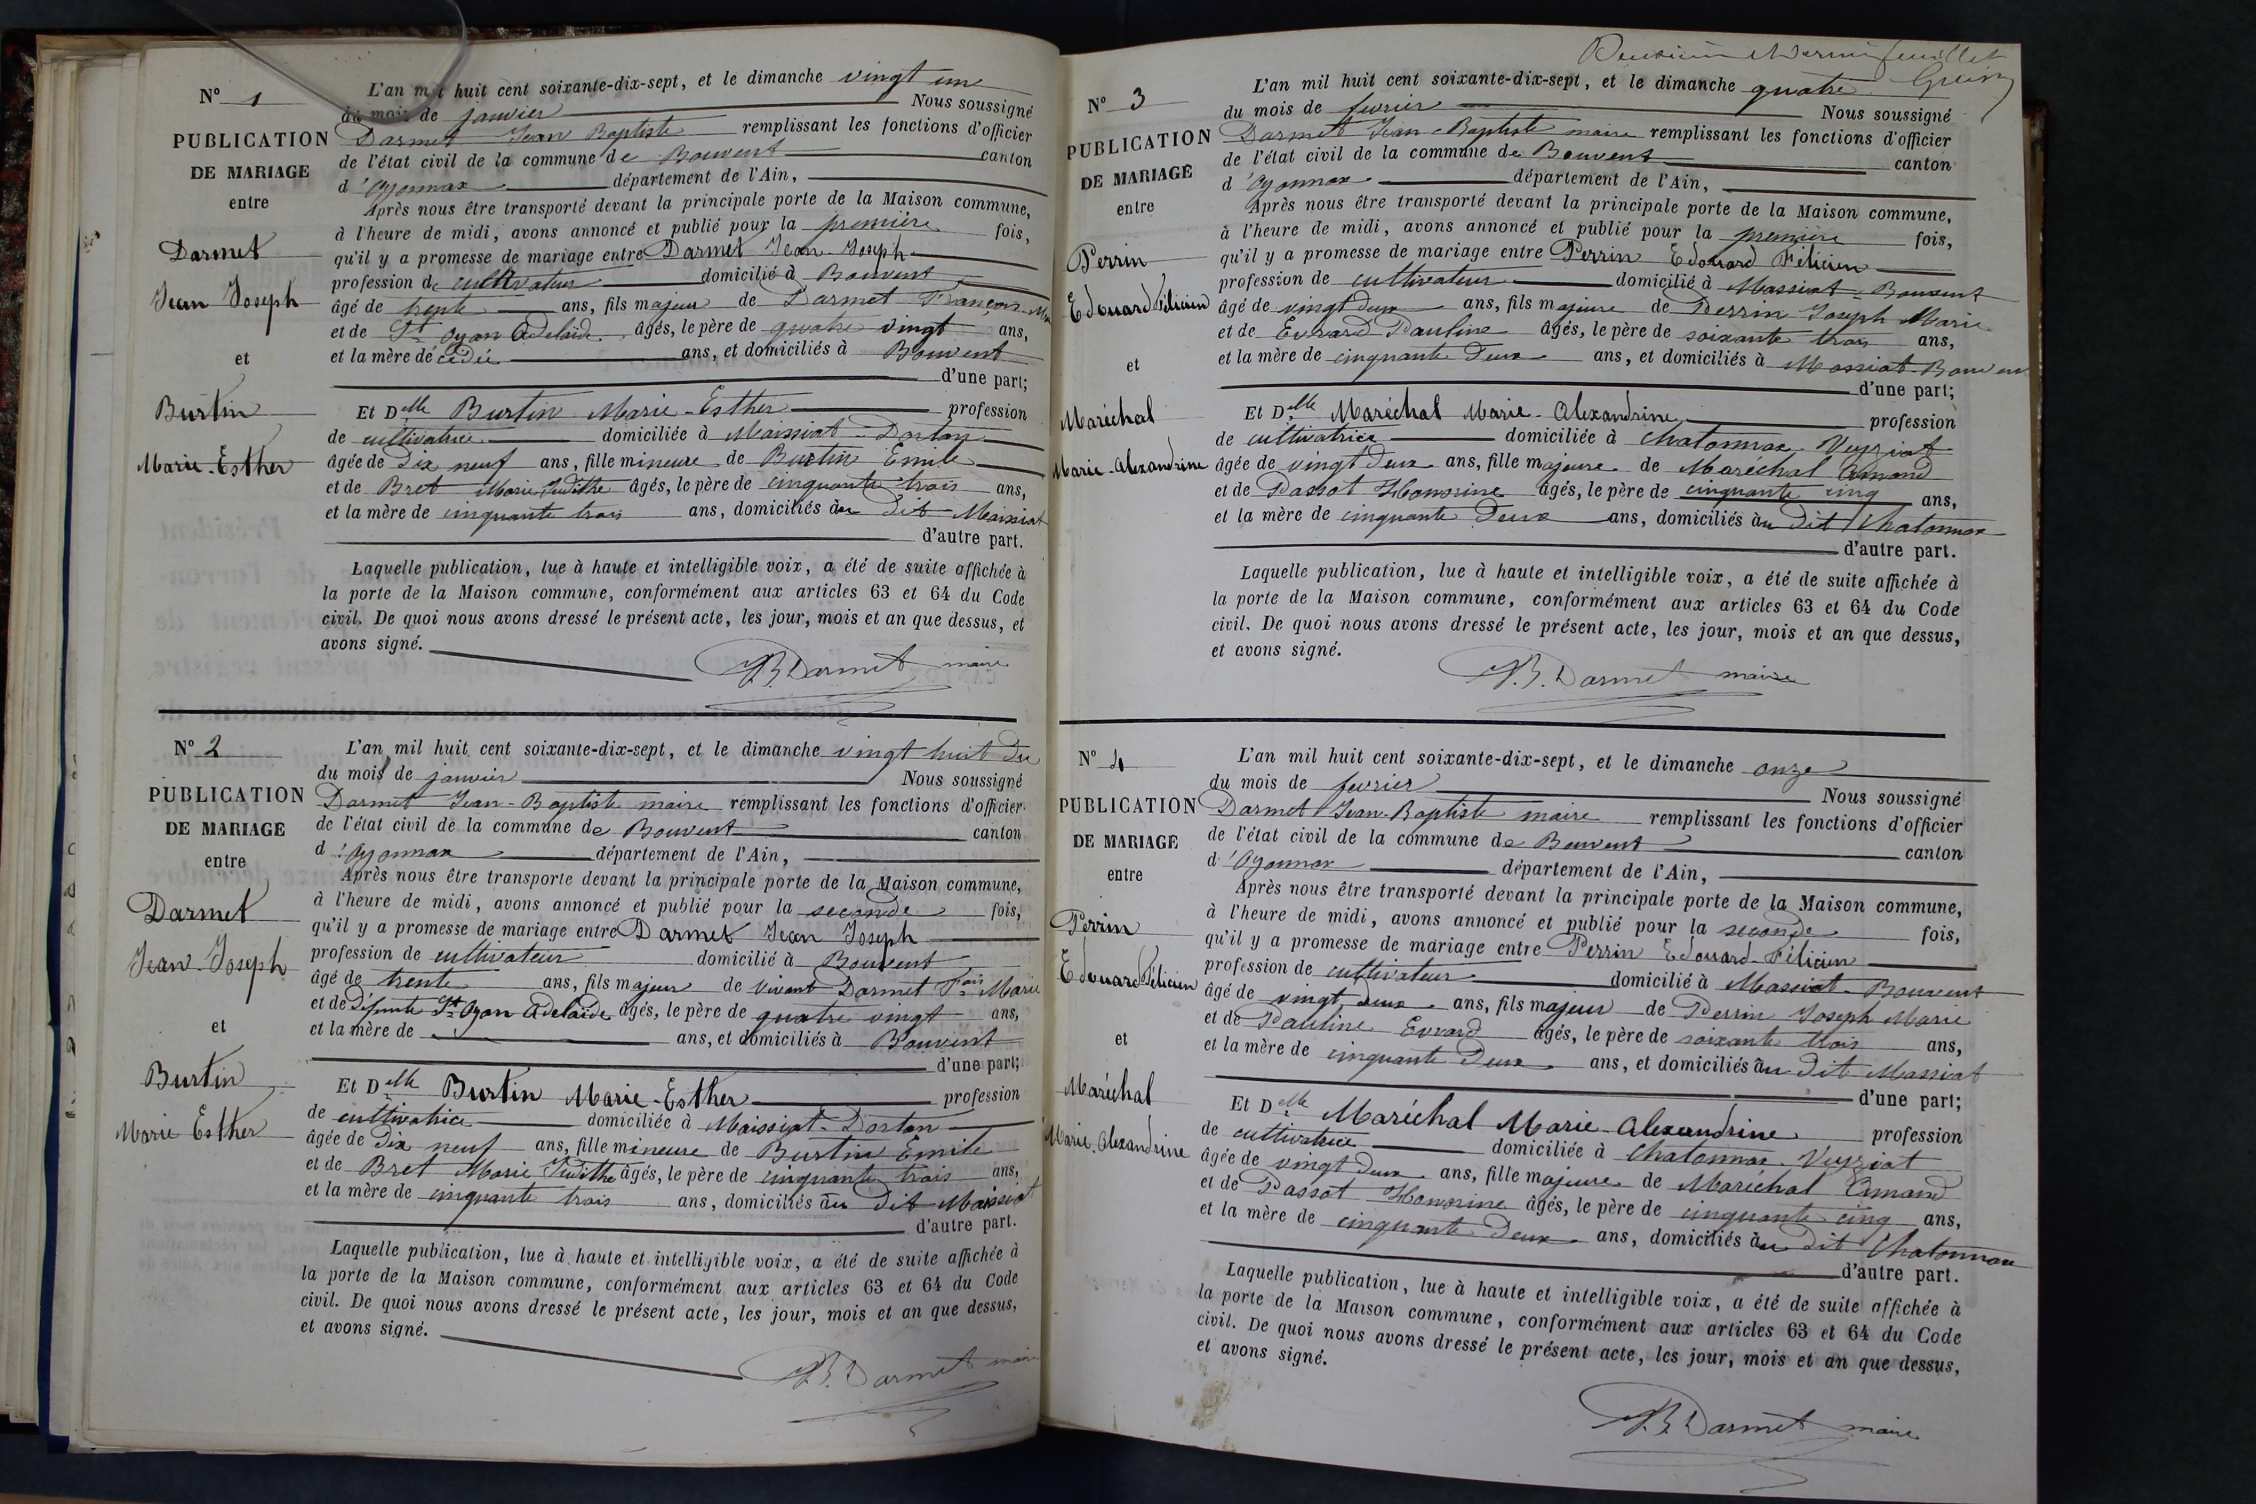 N° 1
PUBLICATION
DE MARIAGE
entre
Darmet
Jean Joseph
et
Burtin
Marie-Esther
L'an mil huit cent soixante-dix-sept, et le dimanche vingt un
du mois de janvier Nous soussigné
Darmet Jean Baptiste remplissant les fonctions d'officier
de l'état civil de la commune de Bouvent canton
d'Oyonnax département de l'Ain,
Après nous être transporté devant la principale porte de la Maison commune,
à l'heure de midi, avons annoncé et publié pour la première fois,
qu'il y a promesse de mariage entre Darmet Jean-Joseph
profession de cultivateur domicilié à Bouvent
âgé de trente ans, fils majeur de Darmet François-Mie
et de St Oyan Adelaïde âgés, le père de quatre vingt ans,
et la mère décédée ans, et domiciliés à Bouvent
d'une part;
Et Delle Burtin Marie-Esther profession
de cultivatrice domiciliée à Maissiat-Dortan
âgée de Dix neuf ans, fille mineure de Burtin Emile
et de Bret Marie Judithe âgés, le père de cinquante trois ans,
et la mère de cinquante trois ans, domiciliés au dit Maissiat
d'autre part.
Laquelle publication, lue à haute et intelligible voix, a été de suite affichée à
la porte de la Maison commune, conformément aux articles 63 et 64 du Code
civil. De quoi nous avons dressé le présent acte, les jour, mois et an que dessus, et
avons signé.
J.B. Darmet maire
N° 2
PUBLICATION
DE MARIAGE
entre
Darmet
Jean-Joseph
et
Burtin
Marie Esther
L'an mil huit cent soixante-dix-sept, et le dimanche vingt huit du
du mois de janvier Nous soussigné
Darmet Jean-Baptiste maire remplissant les fonctions d'officier
de l'état civil de la commune de Bouvent canton
d'Oyonnax département de l'Ain,
Après nous être transporte devant la principale porte de la Maison commune,
à l'heure de midi, avons annoncé et publié pour la seconde fois,
qu'il y a promesse de mariage entre Darmet Jean Joseph
profession de cultivateur domicilié à Bouvent
âgé de trente ans, fils majeur de vivant Darmet Fois Marie
et de défunte St Oyan Adelaïde âgés, le père de quatre vingt ans,
et la mère de ans, et domiciliés à Bouvent
d'une part;
Et Delle Burtin Marie-Esther profession
de cultivatrice domiciliée à Maissiat-Dortan
âgée de Dix neuf ans, fille mineure de Burtin Emile
et de Bret Marie Judithe âgés, le père de cinquante trois ans,
et la mère de cinquante trois ans, domiciliés au dit Maissiat
d'autre part.
Laquelle publication, lue à haute et intelligible voix, a été de suite affichée à
la porte de la Maison commune, conformément aux articles 63 et 64 du Code
civil. De quoi nous avons dressé le présent acte, les jour, mois et an que dessus,
et avons signé.
J.B. Darmet maire
Deuxième et dernier feuillet
N° 3
PUBLICATION
DE MARIAGE
entre
Perrin
Edouard Félicien
et
Maréchal
Marie-Alexandrine
L'an mil huit cent soixante-dix-sept, et le dimanche quatre
du mois de fevrier Nous soussigné
Darmet Jean-Baptiste maire remplissant les fonctions d'officier
de l'état civil de la commune de Bouvent canton
d'Oyonnax département de l'Ain,
Après nous être transporté devant la principale porte de la Maison commune,
à l'heure de midi, avons annoncé et publié pour la première fois,
qu'il y a promesse de mariage entre Perrin Edouard Félicien
profession de cultivateur domicilié à Massiat-Bouvent
âgé de vingt deux ans, fils majeure de Perrin Joseph Marie
et de Evrard Pauline âgés, le père de soixante trois ans,
et la mère de cinquante deux ans, et domiciliés à Massiat-Bouvent
d'une part;
Et Delle Maréchal Marie-Alexandrine profession
de cultivatrice domiciliée à Chatonnax Veyziat
âgée de vingt deux ans, fille majeure de Maréchal Amand
et de Passot Honorine âgés, le père de cinquante cinq ans,
et la mère de cinquante deux ans, domiciliés au dit Chatonnax
d'autre part.
Laquelle publication, lue à haute et intelligible voix, a été de suite affichée à
la porte de la Maison commune, conformément aux articles 63 et 64 du Code
civil. De quoi nous avons dressé le présent acte, les jour, mois et an que dessus,
et avons signé.
J.B. Darmet maire
N° 4
PUBLICATION
DE MARIAGE
entre
Perrin
Edouard Félicien
et
Maréchal
Marie Alexandrine
L'an mil huit cent soixante-dix-sept, et le dimanche onze
du mois de fevrier Nous soussigné
Darmet Jean-Baptiste maire remplissant les fonctions d'officier
de l'état civil de la commune de Bouvent canton
d'Oyonnax département de l'Ain,
Après nous être transporté devant la principale porte de la Maison commune,
à l'heure de midi, avons annoncé et publié pour la seconde fois,
qu'il y a promesse de mariage entre Perrin Edouard-Félicien
profession de cultivateur domicilié à Massiat-Bouvent
âgé de vingt deux ans, fils majeur de Perrin Joseph Marie
et de Pauline Evrard âgés, le père de soixante trois ans,
et la mère de cinquante deux ans, et domiciliés au dit Massiat
d'une part;
Et Delle Maréchal Marie-Alexandrine profession
de cultivatrice domiciliée à Chatonnax Veyziat
âgée de vingt deux ans, fille majeure de Maréchal Amand
et de Passot Honorine âgés, le père de cinquante cinq ans,
et la mère de cinquante deux ans, domiciliés au dit Chatonnax
d'autre part.
Laquelle publication, lue à haute et intelligible voix, a été de suite affichée à
la porte de la Maison commune, conformément aux articles 63 et 64 du Code
civil. De quoi nous avons dressé le présent acte, les jour, mois et an que dessus,
et avons signé.
J.B. Darmet maire